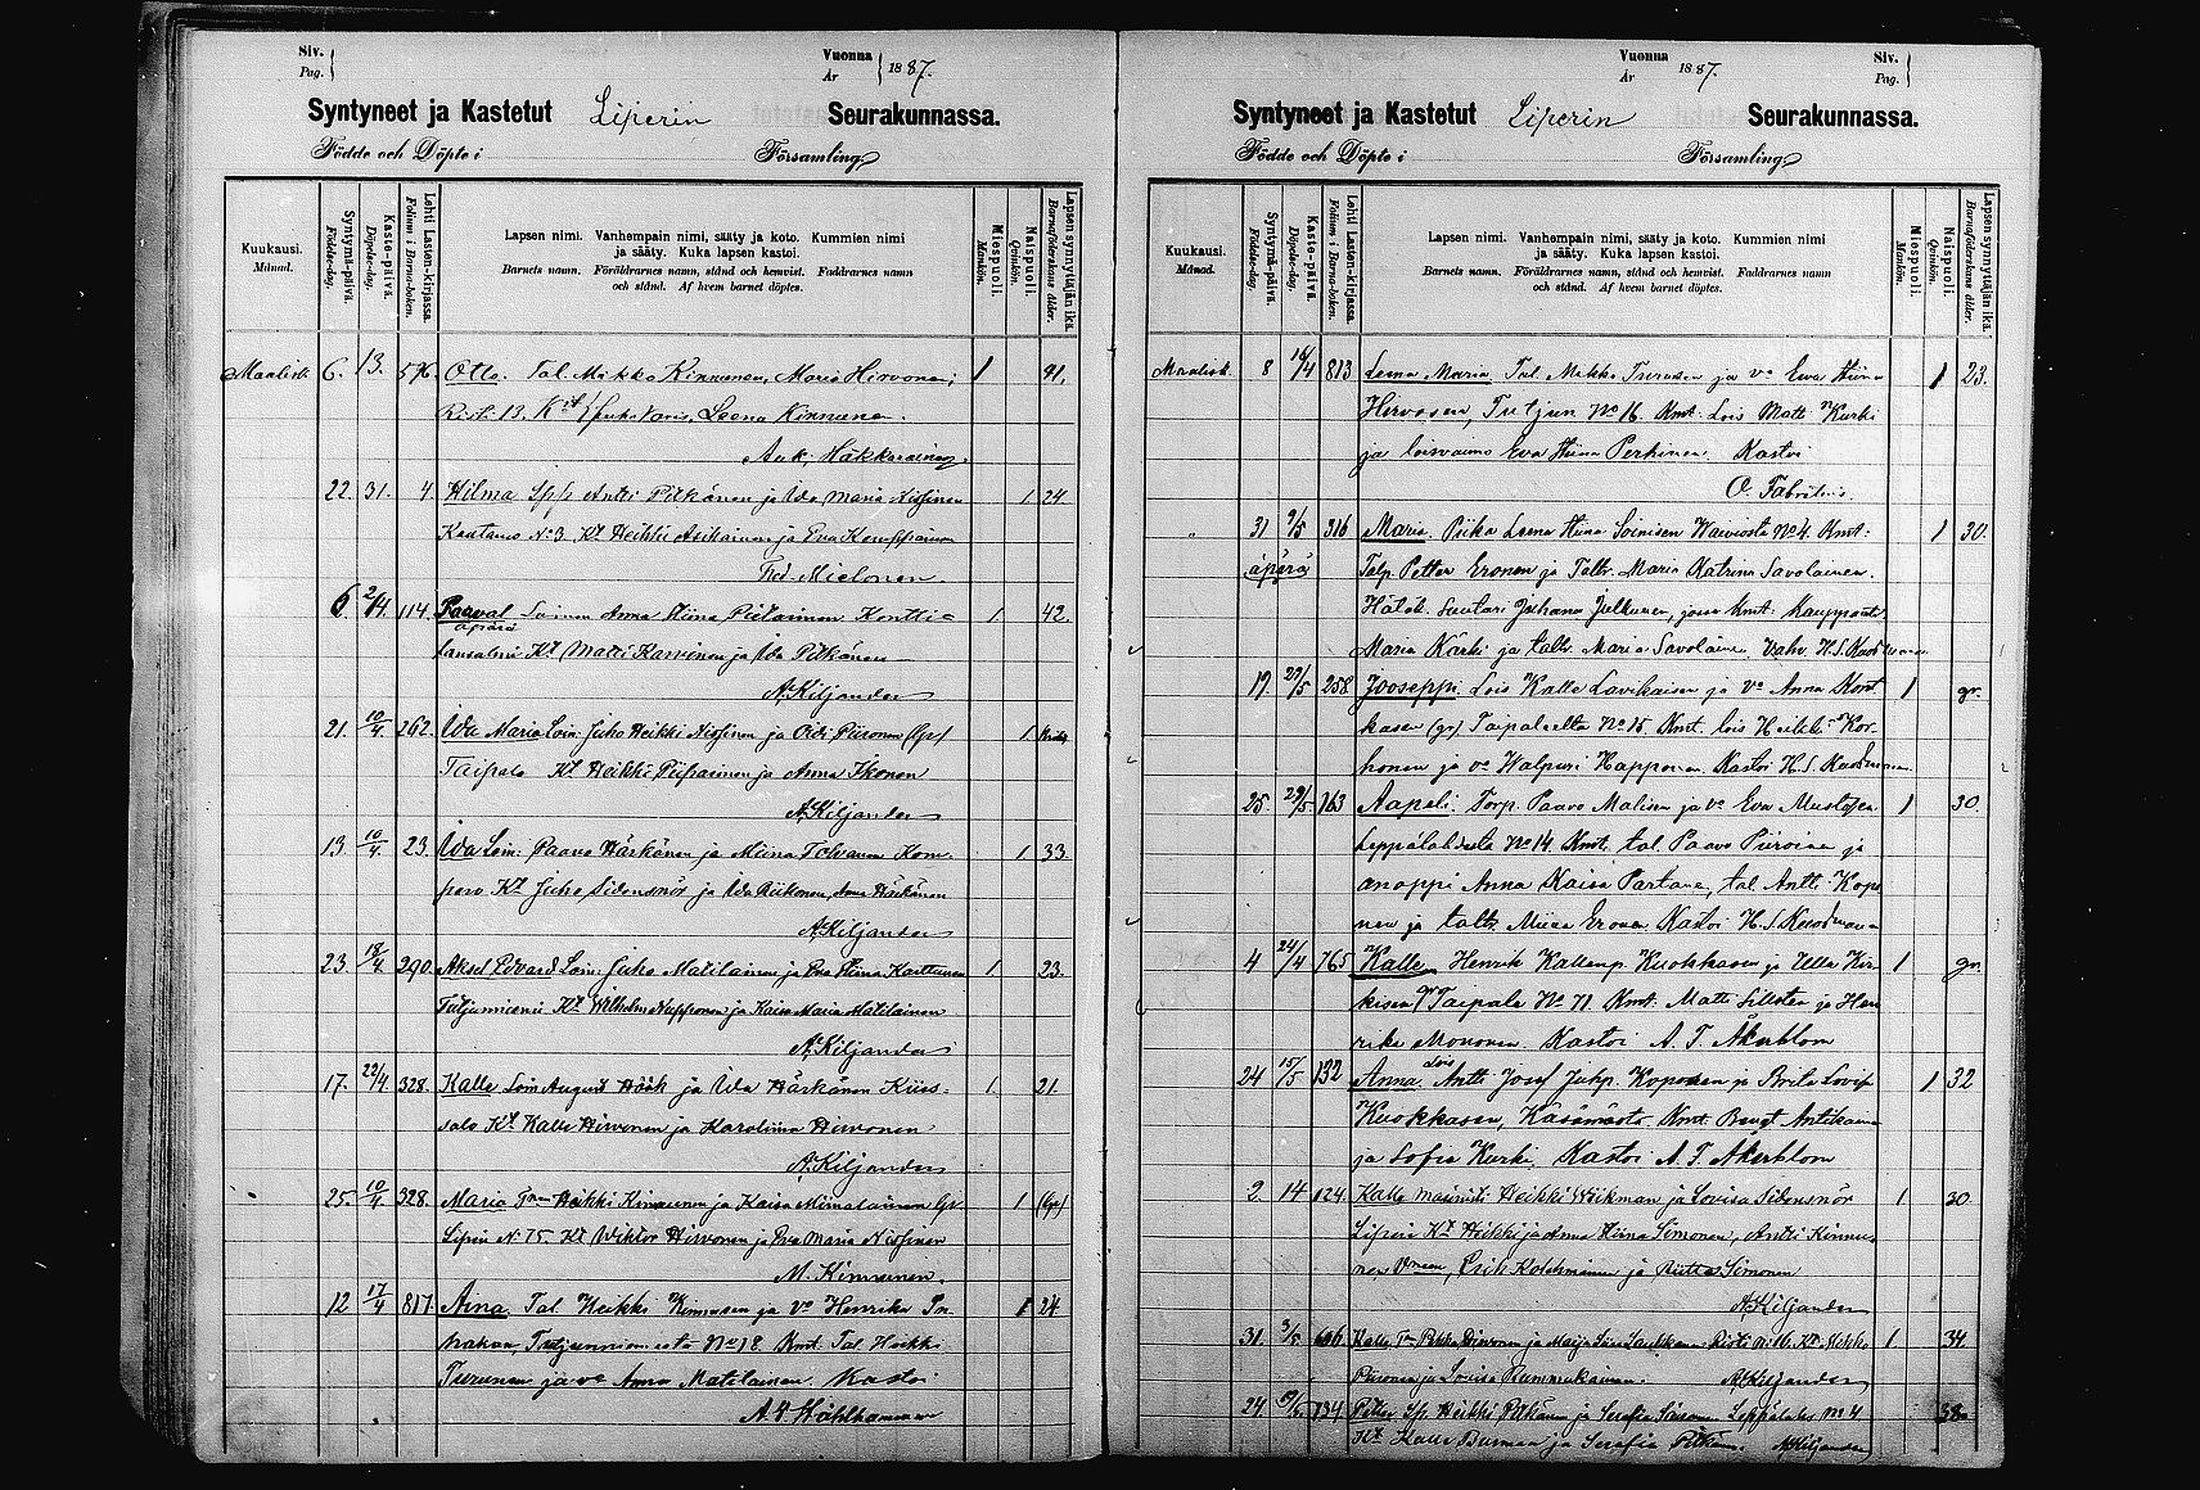 Siv.
Pag.
Vuonna
År
1887.
Syntyneet ja Kastetut Liperin Seurakunnassa.
Födde och Döpte i Församling
Kuukausi.
Månad.
Syntymä-päivä.
Födelse-dag.
Kaste-päivä.
Döpelse-dag.
Lehti Lasten-kirjassa.
Folium i Barna-boken.
Lapsen nimi. Vanhempain nimi, sääty ja koto. Kummien nimi
ja sääty. Kuka lapsen kastoi.
Barnets namn. Föräldrarnes namn, stånd och hemvist. Faddrarnes namn
och stånd. Af hvem barnet döptes.
Miespuoli.
Mankön.
Naispuoli.
Qvinkön.
Lapsen synnyttäjän ikä.
Barnaföderskans ålder.
Maalisk. 6. 13. 576. Otto. Tal. Mikko Kinnunen, Maria Hirvonen; 1 41.
Risti 13. Leena Kinnunen.
Häkkarainen
22. 31. 4 Hilma Antti Pitkänen ja Ida Maria Nissinen 1 24
Kaatamo No 3 Kt Heikki Asikainen ja Eva Kemppainen
Fred. Mielonen.
6. 2/4. 114. Paaval Loinen Anna Stiina Pietarinen Kontti= 1. 42.
äpärä
lansalmi Kt Matti Karvinen ja Ida Pitkänen
A. Kiljander
21. 10/4. 262. Ida Maria Loin. Juho Heikki Nissinen ja Piironen (gr) 1.
Taipale Kt Heikki Piipainen ja Anna Ikonen
A. Kiljander
13. 10/4. 23. Ida Loin: Paavo Härkönen ja Miina Tolvanen Kom- 1 33.
pero Kt Juho Sidensnör ja Ida Riikonen, Anna Härkönen
A. Kiljander
23. 18/4. 290. Aksel Edvard Loin: Juho Matilainen ja Eva Stina Karttunen 1. 23.
Tutjunniemi Kt Wilhelm Nupponen ja Kaisa Maria Matilainen
A. Kiljander
17. 22/4. 328. Kalle Loin August Höök ja Ida Härkönen Kiis- 1. 21.
salo Kt Kalle Hirvonen ja Karoliina Hirvonen
A. Kiljander
25. 10/4. 328. Maria Heikki Kinnunen ja Kaisa Miinalainen Gr. 1 (Gr)
Liperi No 75. Kt Wiktor Hirvonen ja Eva Maria Nissinen
M. Kinnunen.
12 17/4 817. Aina. Tal. Heikki Kinnusen ja vo Henrika Pu- 1 24.
hakan, Tutjunniemestä No 18. Kmt. Tal. Heikki
Turunen ja vo Anna Matilainen. Kastoi
A. W. Håhlhammar
Siv.
Pag.
Vuonna
År
1887.
Syntyneet ja Kastetut Liperin Seurakunnassa.
Födde och Döpte i Församling
Kuukausi.
Månad.
Syntymä-päivä.
Födelse-dag.
Kaste-päivä.
Döpelse-dag.
Lehti Lasten-kirjassa.
Folium i Barna-boken.
Lapsen nimi. Vanhempain nimi, sääty ja koto. Kummien nimi
ja sääty. Kuka lapsen kastoi.
Barnets namn. Föräldrarnes namn, stånd och hemvist. Faddrarnes namn
och stånd. Af hvem barnet döptes.
Miespuoli.
Mankön.
Naispuoli.
Qvinkön.
Lapsen synnyttäjän ikä.
Barnaföderskans ålder.
Maalisk. 8 16/4 813 Leena Maria Tal. Mikko Turusen ja vo Eva Stiina 1 23.
Hirvosen, Tutjun No 16. Kmt: Lois Matti Kurki
ja loisvaimo Eva Stiina Perhinen. Kastoi
O. Fabritius.
" 31 9/5 316 Maria. Piika Leena Stiina Soinisen Waiviosta No 4. Kmt: 1 30.
äpärä Talp. Petter Eronen ja Taltr. Maria Katrina Savolainen.
Hätäk. Suutari Juhana Julkunen, jossa Kmt: Kauppiaan
Maria Kärki ja taltr. Maria Savolainen. Vahv. H. S. Kuodman
19. 29/5 258 Jooseppi. Lois Kalle Lavikaisen ja vo Anna Kont- 1 gr.
kasen (gr.) Taipaleelta No 15. Kmt. lois Heikki Kor-
honen ja vo Walpuri Happonen. Kastoi H. S. Kuodman.
25. 29/5 763 Aapeli. Torp. Paavo Malisen ja vo Eva Mustosen 1 30.
Leppälahdesta No 14. Kmt. tal. Paavo Piiroinen ja
anoppi Anna Kaisa Partanen, tal. Antti Kopo-
nen ja taltr. Miina Eronen. Kastoi H. S. Kuodman
4 24/4 765 Kalle Henrik Kallenp. Kuokkasen ja Ulla Kir- 1 gr.
kisen gr Taipale No 71. Kmt: Matti Sillsten ja Hen
rika Mononen. Kastoi A. T. Åkerblom
24 15/5 132 Anna. Lois Antti Josef Juhp. Koponen ja Brita Lovisa 1 32
Kuokkasen, Käsämästä. Kmt: Bengt Antikainen
ja Sofia Kurki. Kastoi A. T. Åkerblom
2. 14 124. Kalle masinisti Heikki Wiikman ja Lovisa Sidensnör 1 30
Liperi Kt Heikki ja Anna Stiina Simonen, Antti Kinnu-
nen, Erik Kolehmainen ja Riitta Simonen
A. Kiljander
31. 3/5 606 Kalle Pekka Hirvonen ja Maija Liisa Laukkanen Risti No 16. Kt. Mikko 1. 34.
Piironen ja Lovisa Rummukainen. A. Kiljander
24. 134 Petter Heikki Pitkänen ja Serafia Leppälaks No 4 38
Kt Kalle Burman ja Serafia Pitkänen. A. Kiljander